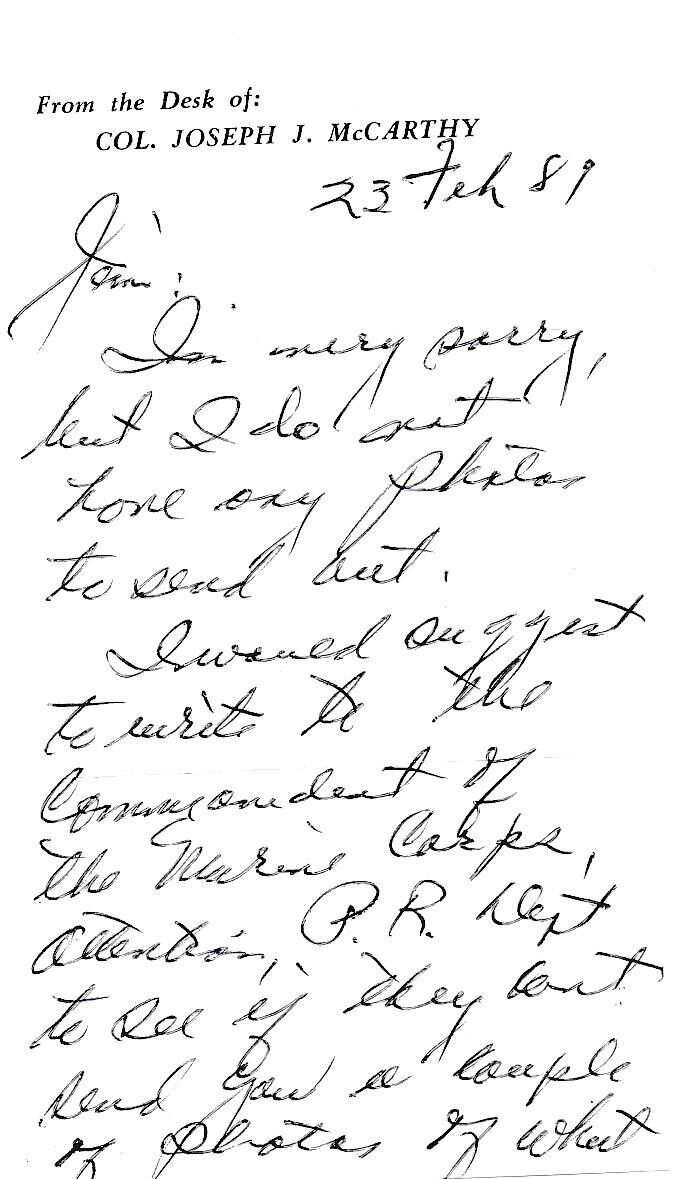 From the Desk of:
COL. JOSEPH J. McCARTHY
23 Feb 89
Jim:
I'm very sorry,
but I do not
have any photos
to send out.
I would suggest
to write to the
Commandant of
the Marine Corps,
attention, P.R. Dept
to see if they can't
send you a couple
of photos of what